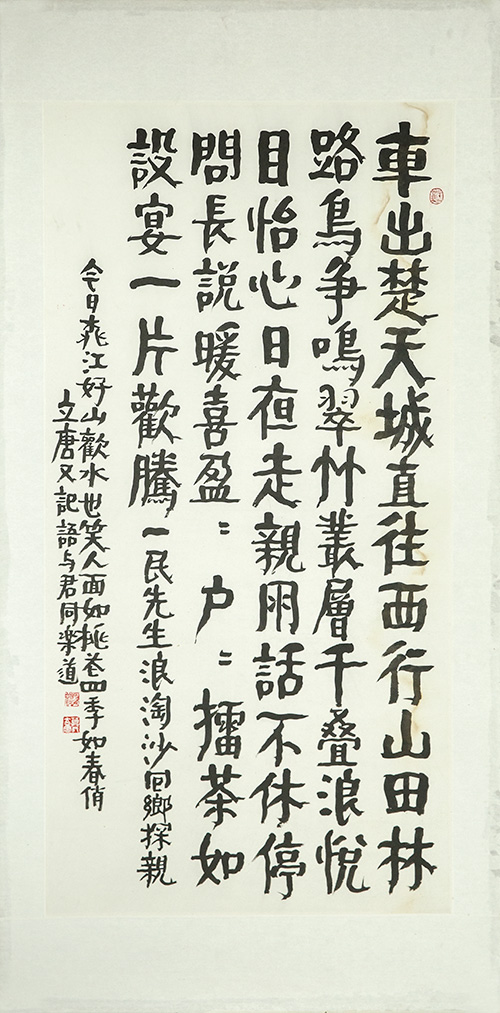 車出楚天城直往西行山田林
路鳥争鳴翠竹叢層千叠浪悅
目怡心日夜走親朋話不休停
問長説暖喜盈〻户〻擂茶如
設宴一片歡騰一民先生浪淘沙回鄉探親
今日桃江好山歡水也笑人面如桃花四季如春俏
立唐又記語与君同楽道